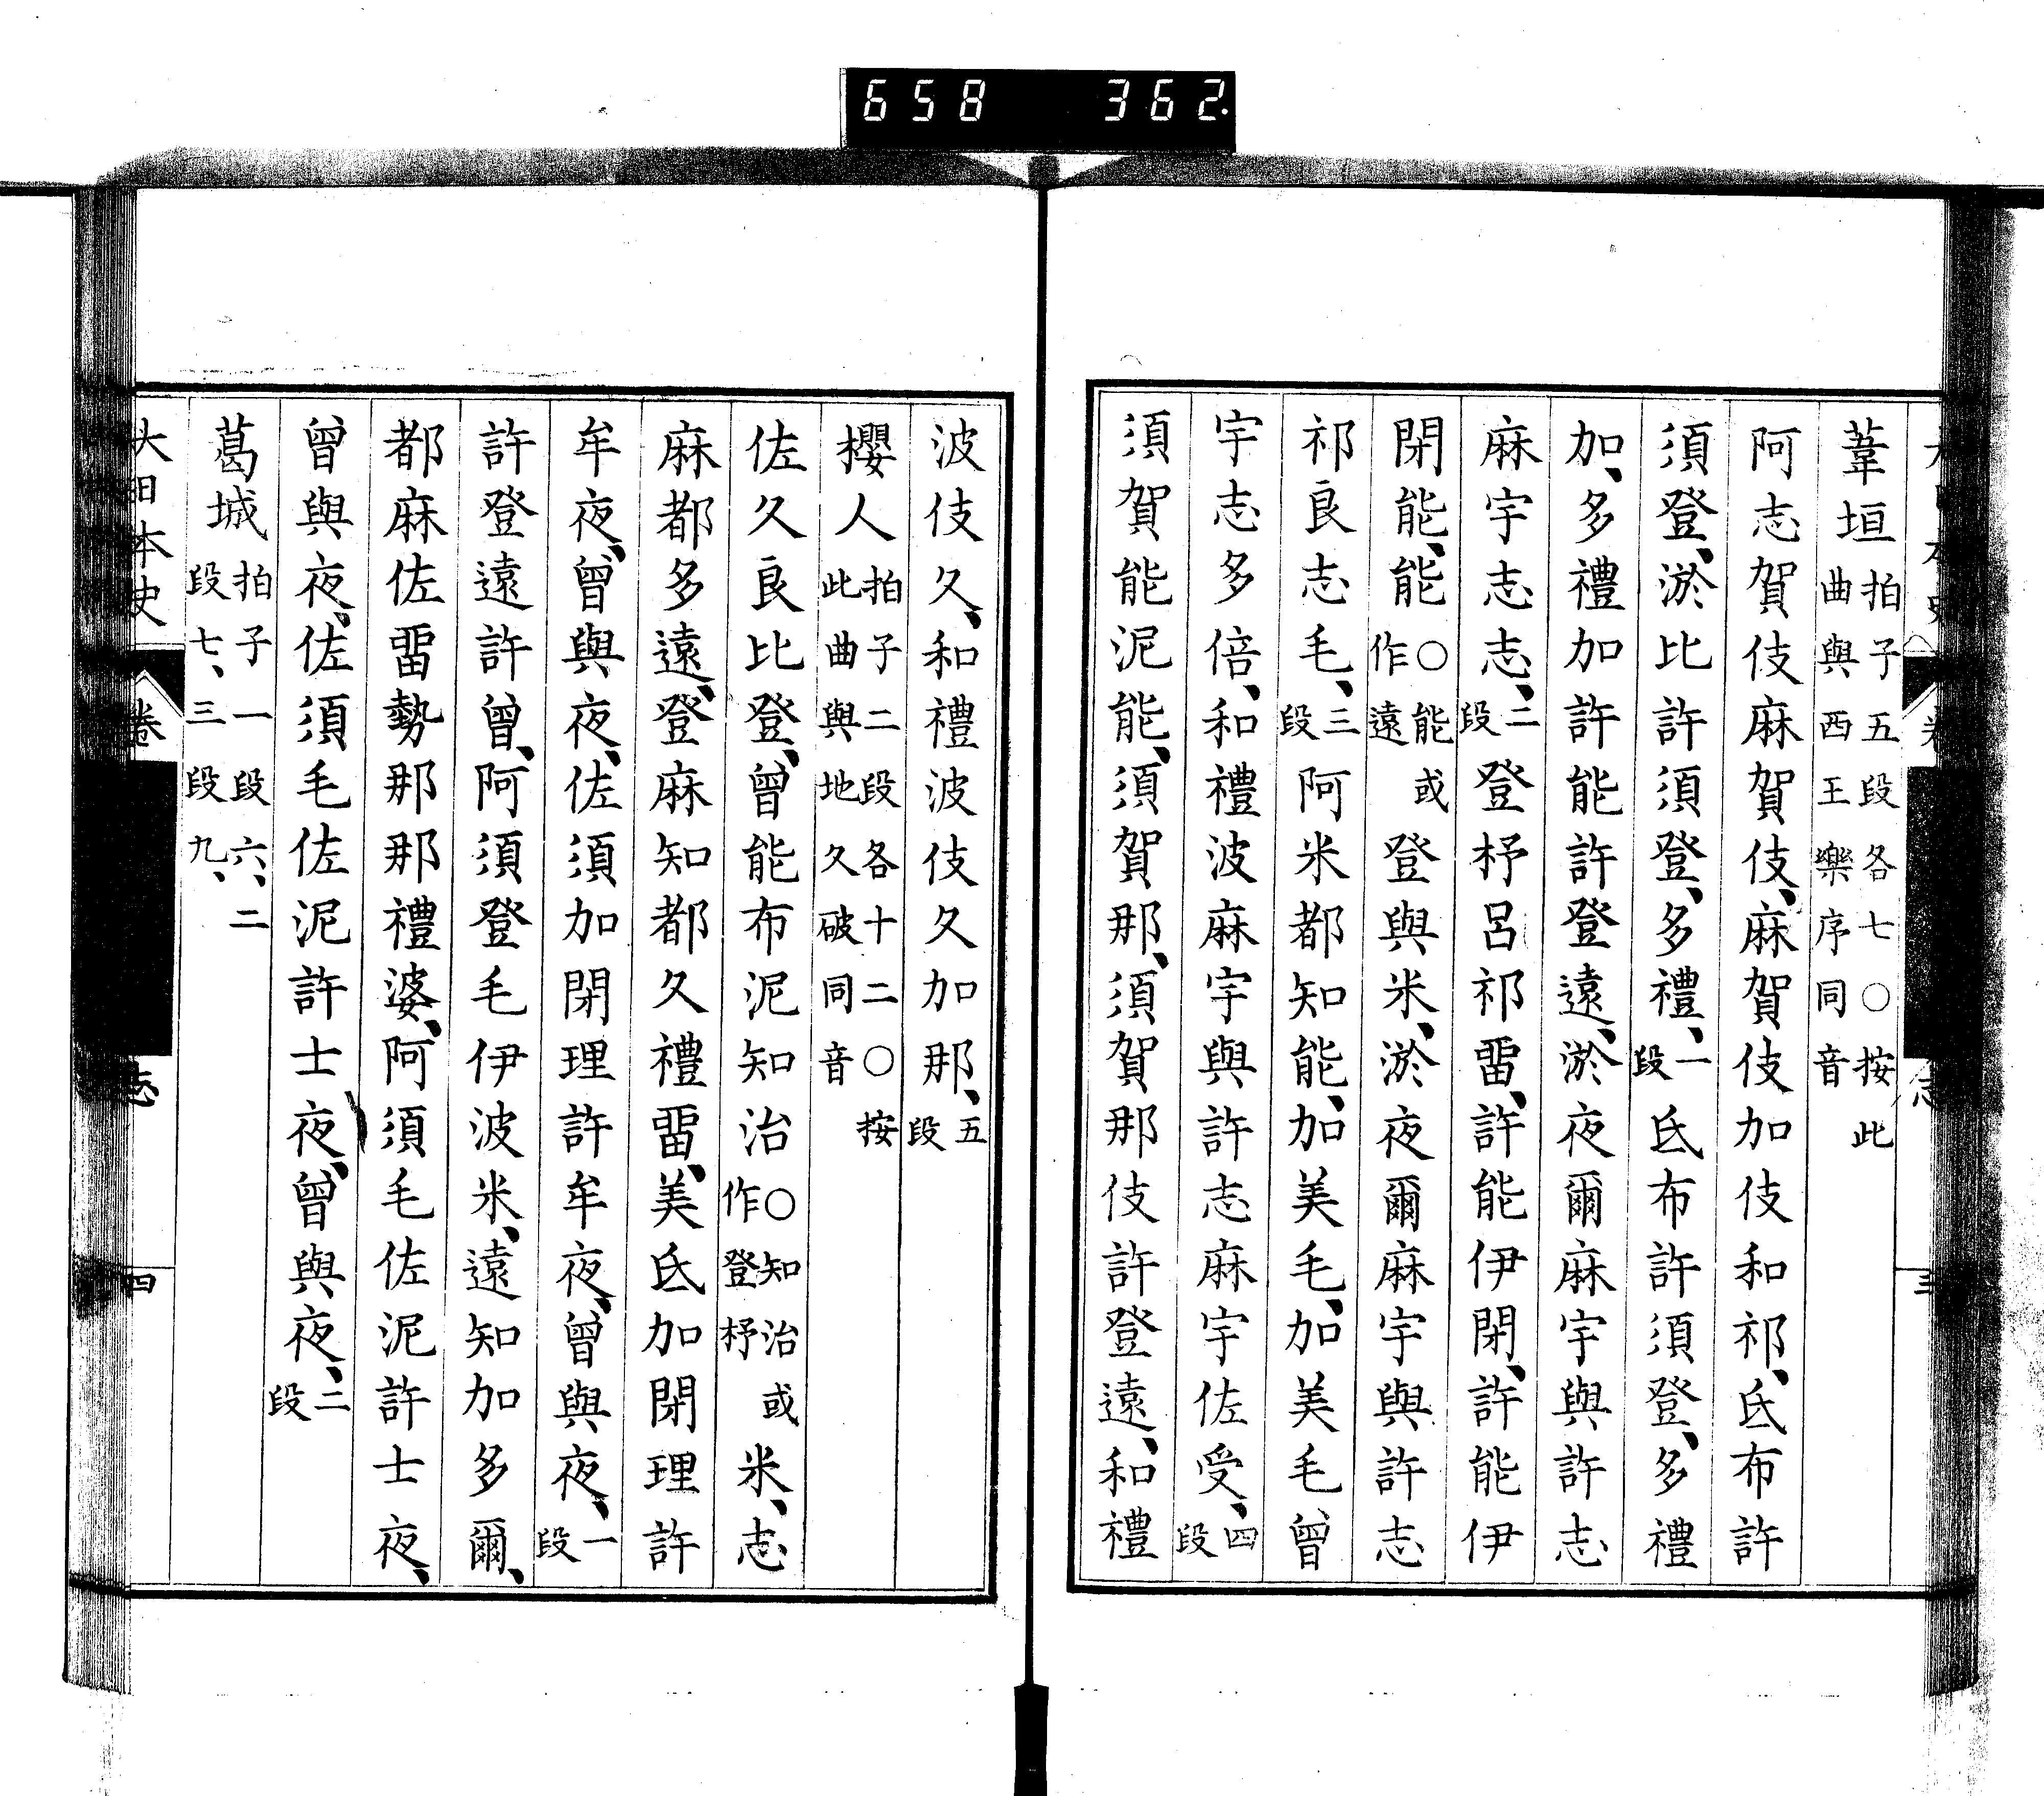 658 362
葦垣拍子五段各七○按此曲與西王樂序同音
阿志賀伎麻賀伎、麻賀伎加伎和祁、氐布許
須登、淤比許須登、多禮、一段氐布許須登、多禮
加、多禮加許能許登遠、淤夜爾麻宇與許志
麻宇志志、二段登杼呂祁畱、許能伊閇、許能伊
閇能、能○能或作遠登與米、淤夜爾麻宇與許志
祁良志毛、三段阿米都知能、加美毛、加美毛、曾
宇志多倍、和禮波麻宇與許志麻宇佐受、四段
須賀能泥能、須賀那、須賀那伎許登遠、和禮
波伎久、和禮波伎久加那、五段
櫻人拍子二段各十二○按此曲與地久破同音
佐久良比登、曾能布泥知治○知治或作登杼米、志
麻都多遠、登麻知都久禮畱、美氐加閇理許
牟夜、曾與夜、佐須加閇理許牟夜、曾與夜、一段
許登遠許曾、阿須登毛伊波米、遠知加多爾、
都麻佐畱勢那那禮婆、阿須毛佐泥許士夜、
曾與夜、佐須毛佐泥許士夜、曾與夜、二段
葛城拍子一段六、二段七、三段九、
大日本史 卷 志 四